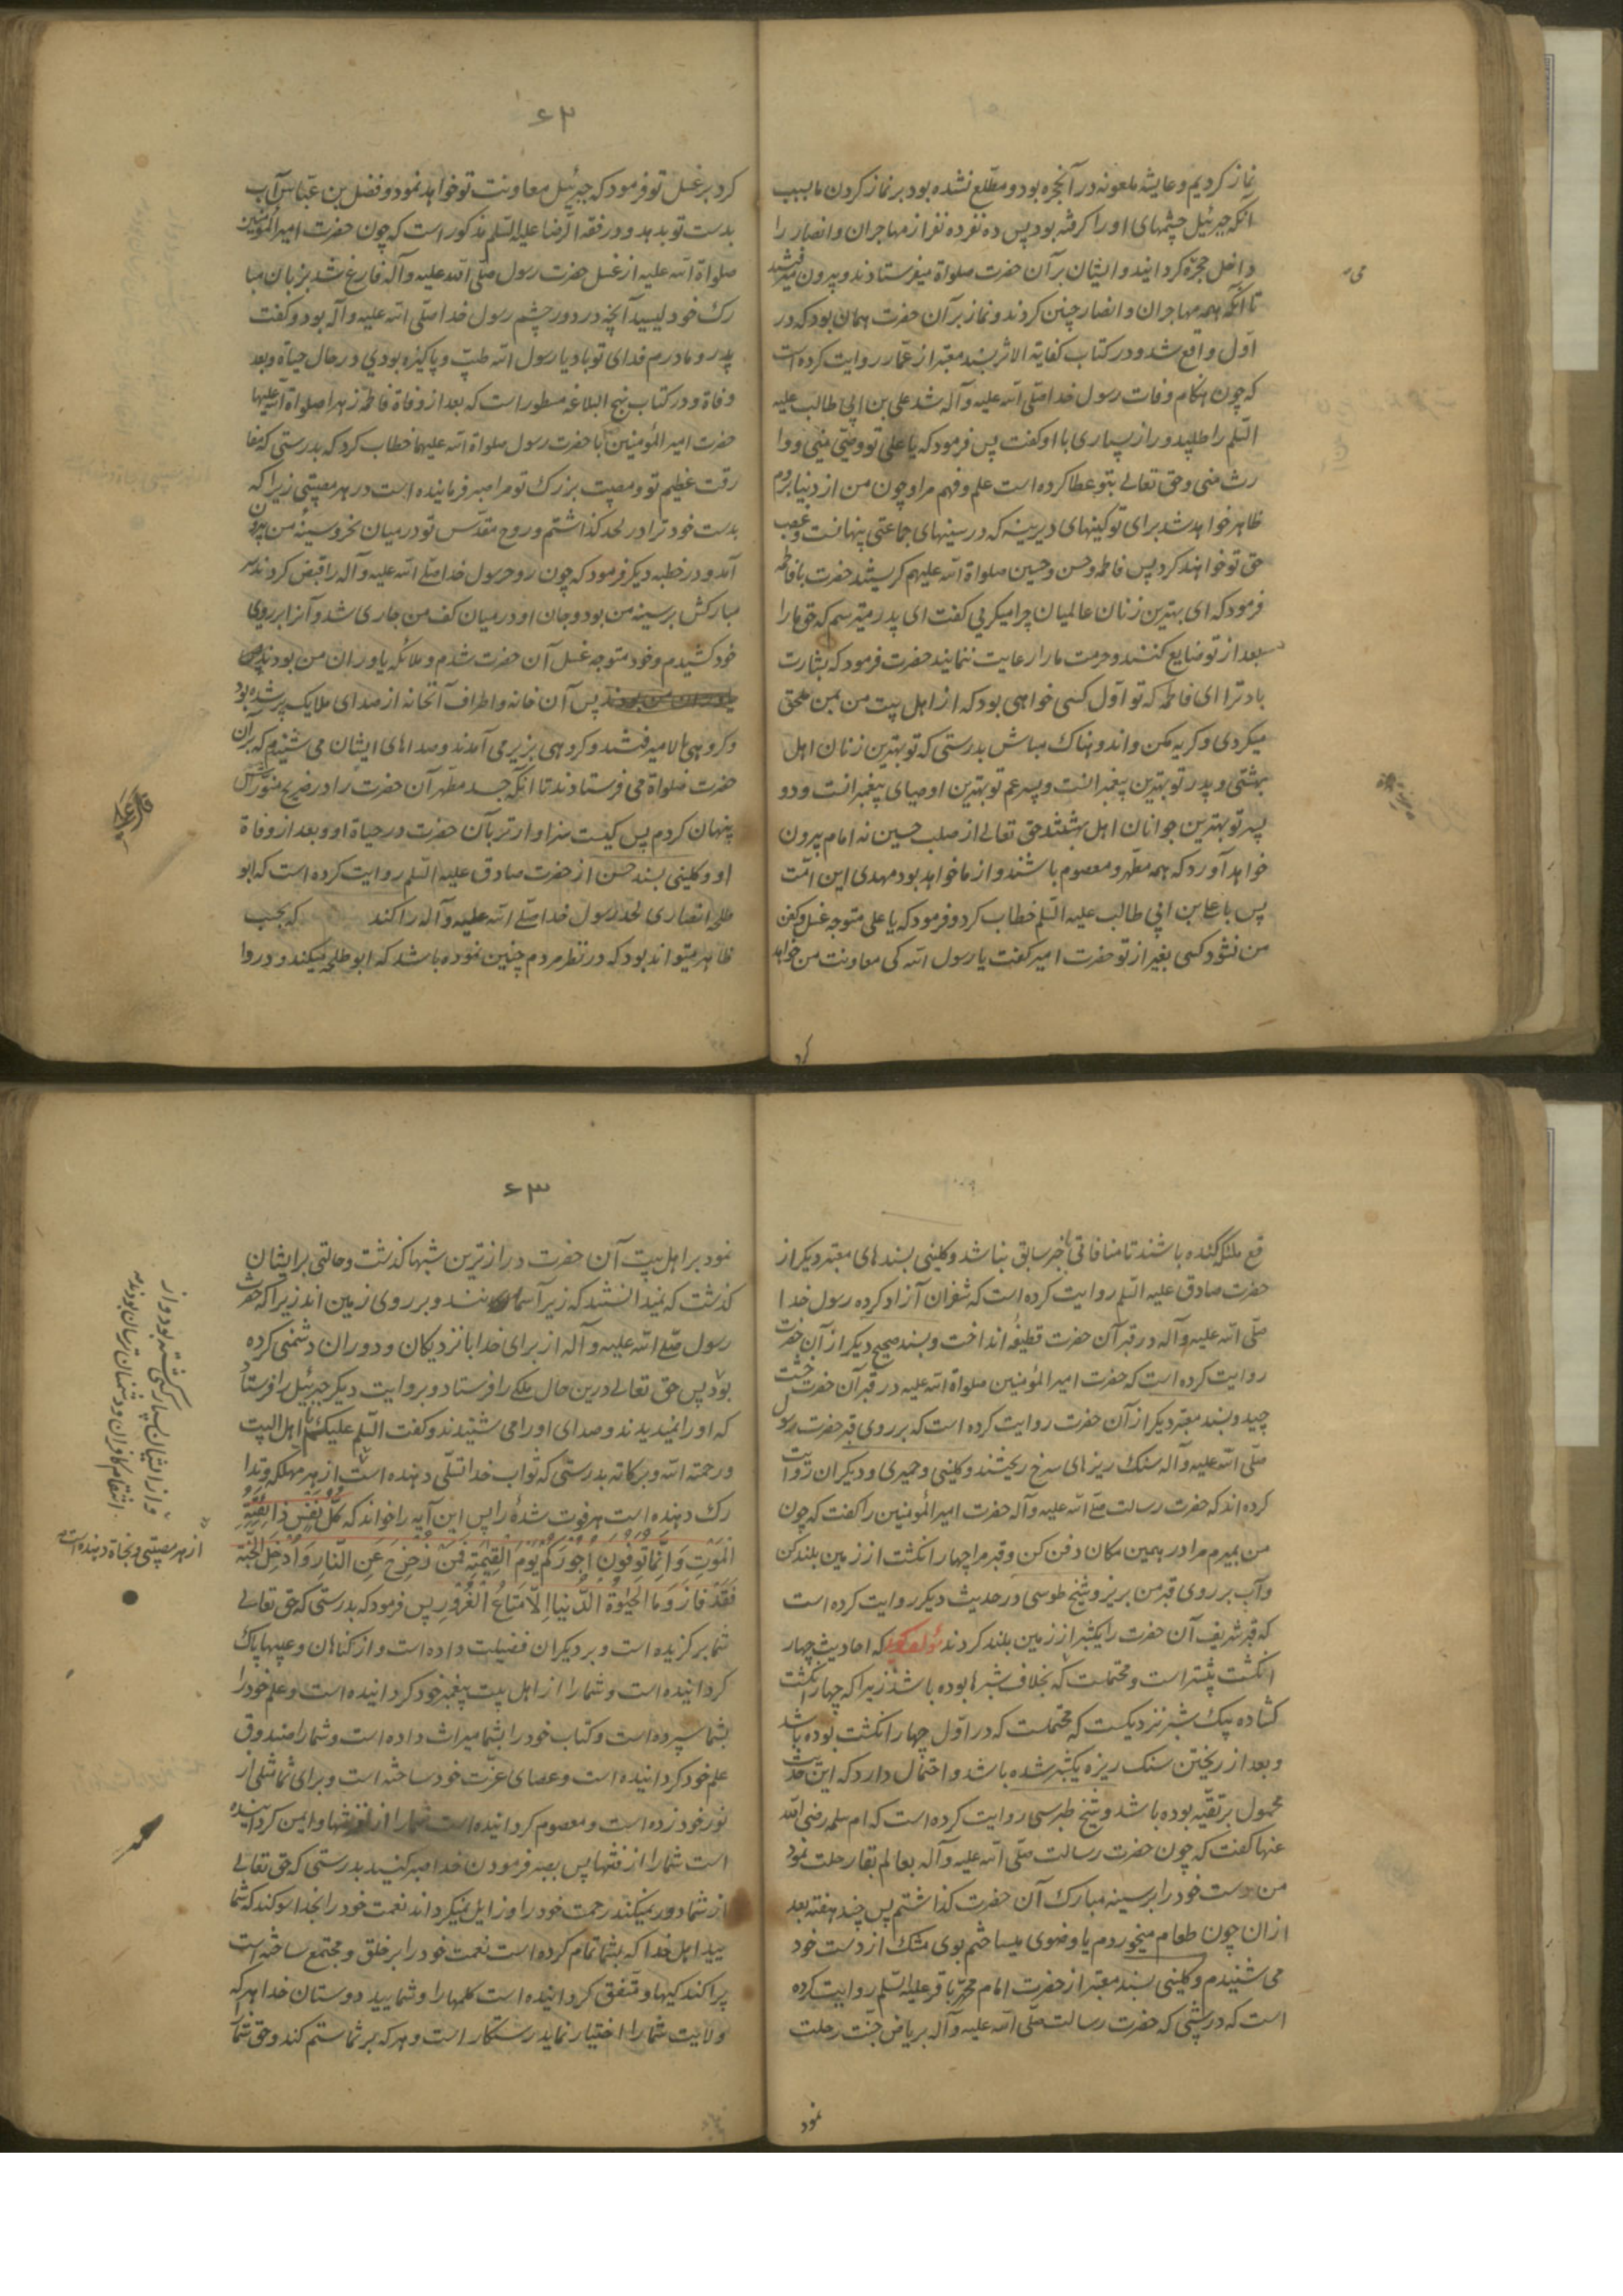 نماز کردیم و عایشه ملعونه در آنحجره بود و مطلع نشده بود بر نماز کردن ما بسبب
آنکه جبرئیل چشمهای او را گرفته بود پس ده نفر ده نفر از مهاجران و انصار را
داخل حجره گردانید و ایشان بر آن حضرت صلواة میفرستادند و بیرون میرفتند
تا آنکه همه مهاجران و انصار چنین کردند و نماز بر آن حضرت همان بود که در
اول واقع شد و در کتاب کفایة الاثر بسند معتبر از عمار روایت کرده است
که چون هنکام وفات رسول خدا صلّی الله علیه و آله شد علی بن ابی طالب علیه
السّلم را طلبید و راز بسیاری با او کفت پس فرمود که یا علی تو وصیّ منی و وا
رث منی و حق تعالی بتو عطا کرده است علم و فهم مرا و چون من از دنیا بروم
ظاهر خواهد شد برای تو کینهای دیرینه که در سینهای جماعتی پنهانست و غصب
حق تو خواهند کرد پس فاطمه و حسن و حسین صلواة الله علیهم کریستند حضرت با فاطمه
فرمود که ای بهترین زنان عالمیان چرا میکریی کفت ای پدر میترسم که حق ما را
بعد از تو ضایع کنند و حرمت ما را رعایت ننمایند حضرت فرمود که بشارت
باد ترا ای فاطمه که تو اول کسی خواهی بود که از اهل بیت من بمن ملحق
میکردی و کریه مکن و اندوهناک مباش بدرستی که تو بهترین زنان اهل
بهشتی و پدر تو بهترین پیغمبرانست و پسر عم تو بهترین اوصیای پیغمبرانست و دو
پسر تو بهترین جوانان اهل بهشتند حق تعالی از صلب حسین نه امام بیرون
خواهد آورد که همه مطهر و معصوم باشند و از ما خواهد بود مهدی این امّت
پس با علی بن ابی طالب علیه السّلم خطاب کرد و فرمود که یا علی متوجه غسل و کفن
من نشود کسی بغیر از تو حضرت امیر کفت یا رسول الله کی معاونت من خواهد
کرد
۶۲
کرد بر غسل تو فرمود که جبرئیل معاونت تو خواهد نمود و فضل بن عبّاس آب
بدست تو بدهد و در فقه الرّضا علیه السّلم مذکور است که چون حضرت امیر المؤمنین
صلواة الله علیه از غسل حضرت رسول صلّی الله علیه و آله فارغ شد بزبان مبا
رک خود لیسید آنچه در دور چشم رسول خدا صلّی الله علیه و آله بود و کفت
پدر و مادرم فدای تو باد یا رسول الله طیّب و پاکیزه بودی در حال حیاة و بعد
وفاة و در کتاب نهج البلاغه مسطور است که بعد از وفاة فاطمه زهرا صلواة الله علیها
حضرت امیر المؤمنین با حضرت رسول صلواة الله علیهما خطاب کرد که بدرستی که مفا
رقت عظیم تو و مصیبت بزرک تو مرا صبر فرماینده است در هر مصیبتی زیرا که
بدست خود ترا در لحد کذاشتم و روح مقدّس تو در میان نحر و سینهٔ من بیرون
آمد و در خطبه دیکر فرمود که چون روح رسول خدا صلّی الله علیه و آله را قبض کردند سر
مبارکش بر سینه من بود و جان او در میان کف من جاری شد و آنرا بر روی
خود کشیدم و خود متوجه غسل آن حضرت شدم و ملائکه یاوران من بودند
پس آن خانه و اطراف آنخانه از صدای ملایک پر شده بود
و کروهی بالا میرفتند و کروهی بزیر می آمدند و صداهای ایشان می شنیدم که بر آن
حضرت صلواة می فرستادند تا آنکه جسد مطهر آن حضرت را در ضریح منورش
پنهان کردم پس کیست سزاوارتر بآن حضرت در حیاة او و بعد از وفاة
او و کلینی بسند حسن از حضرت صادق علیه السّلم روایت کرده است که ابو
طلحه انصاری لحد رسول خدا صلّی الله علیه و آله را کند که بحسب
ظاهر میتواند بود که در نظر مردم چنین نموده باشد که ابو طلحه میکند و در وا
قع ملئکه کننده باشند تا منافاتی با خبر سابق نباشد و کلینی بسندهای معتبر دیکر از
حضرت صادق علیه السّلم روایت کرده است که شقران آزاد کرده رسول خدا
صلّی الله علیه و آله در قبر آن حضرت قطیفهٔ انداخت و بسند صحیح دیکر از آن حضرت
روایت کرده است که حضرت امیر المؤمنین صلواة الله علیه در قبر آن حضرت خشت
چید و بسند معتبر دیکر از آن حضرت روایت کرده است که بر روی قبر حضرت رسول
صلّی الله علیه و آله سنک ریزهای سرخ ریختند و کلینی و حمیری و دیکران روایت
کرده اند که حضرت رسالت صلّی الله علیه و آله حضرت امیر المؤمنین را کفت که چون
من بمیرم مرا در همین مکان دفن کن و قبر مرا چهار انکشت از زمین بلند کن
و آب بر روی قبر من بریز و شیخ طوسی در حدیث دیکر روایت کرده است
که قبر شریف آن حضرت را یکشبر از زمین بلند کردند مؤلف کوید که احادیث چهار
انکشت بیشتر است و محتملست که بخلاف شبرها بوده باشد زیرا که چهار انکشت
کشاده بیک شبر نزدیکست که محتملست که در اول چهار انکشت بوده باشد
و بعد از ریختن سنک ریزه یکشبر شده باشد و احتمال دارد که این حدیث
محمول بر تقیّه بوده باشد و شیخ طبرسی روایت کرده است که ام سلمه رضی الله
عنها کفت که چون حضرت رسالت صلّی الله علیه و آله بعالم بقا رحلت نمود
من دست خود را بر سینه مبارک آن حضرت کذاشتم پس چند هفته بعد
از ان چون طعام میخوردم یا وضوی میساختم بوی مشک از دست خود
می شنیدم و کلینی بسند معتبر از حضرت امام محمّد باقر علیه السّلم روایت کرده
است که در شبی که حضرت رسالت صلّی الله علیه و آله بریاض جنّت رحلت
نمود
۶۳
نمود بر اهل بیت آن حضرت درازترین شبها کذشت و حالتی بر ایشان
کذشت که نمیدانستند که زیر آسمانند و بر روی زمین اند زیرا که حضرت
رسول صلّی الله علیه و آله از برای خدا با نزدیکان و دوران دشمنی کرده
بود پس حق تعالی درین حال ملکی را فرستاد و بروایت دیکر جبرئیل را فرستاد
که او را نمیدیدند و صدای او را می شنیدند و کفت السّلم علیکم یا اهل البیت
و رحمة الله و برکاته بدرستی که ثواب خدا تسلّی دهنده است از هر مهلکه و تدا
رک دهنده است هر فوت شدهٔ را پس این آیه را خواند که کُلُّ نَفْسٍ ذَائِقَةُ
الْمَوْتِ وَ اِنَّمَا تُوَفَّوْنَ اُجُورَکُمْ یَوْمَ الْقِیٰمَةِ فَمَنْ زُحْزِحَ عَنِ النَّارِ وَ اُدْخِلَ الْجَنَّةَ
فَقَدْ فَازَ وَ مَا الْحَیٰوةُ الدُّنْیَا اِلَّا مَتَاعُ الْغُرُورِ پس فرمود که بدرستی که حق تعالی
شما بر کزیده است و بر دیکران فضیلت داده است و از کناهان و عیبها پاک
کردانیده است و شما را از اهل بیت پیغمبر خود کردانیده است و علم خود را
بشما سپرده است و کتاب خود را بشما میراث داده است و شما را صندوق
علم خود کردانیده است و عصای عزّت خود ساخته است و برای شما مثلی از
نور خود زده است و معصوم کردانیده است شما را از لغزشها و ایمن کردانیده
است شما را از فتنها پس بصبر فرمودن خدا صبر کنید بدرستی که حق تعالی
از شما دور نمیکند رحمت خود را و زایل نمیکرداند نعمت خود را بخدا سوکند که شما
یید اهل خدا که بشما تمام کرده است نعمت خود را بر خلق و مجتمع ساخته است
پراکندکیها و متّفق کردانیده است کلمها را و شمایید دوستان خدا هر که
ولایت شما را اختیار نماید رستکار است و هر که بر شما ستم کند و حق شما
و از ایشان بسیار کشته بود و از
انتقام کافران و دشمنان ترسان بودند
از هر مصیبتی و نجاة دهنده است